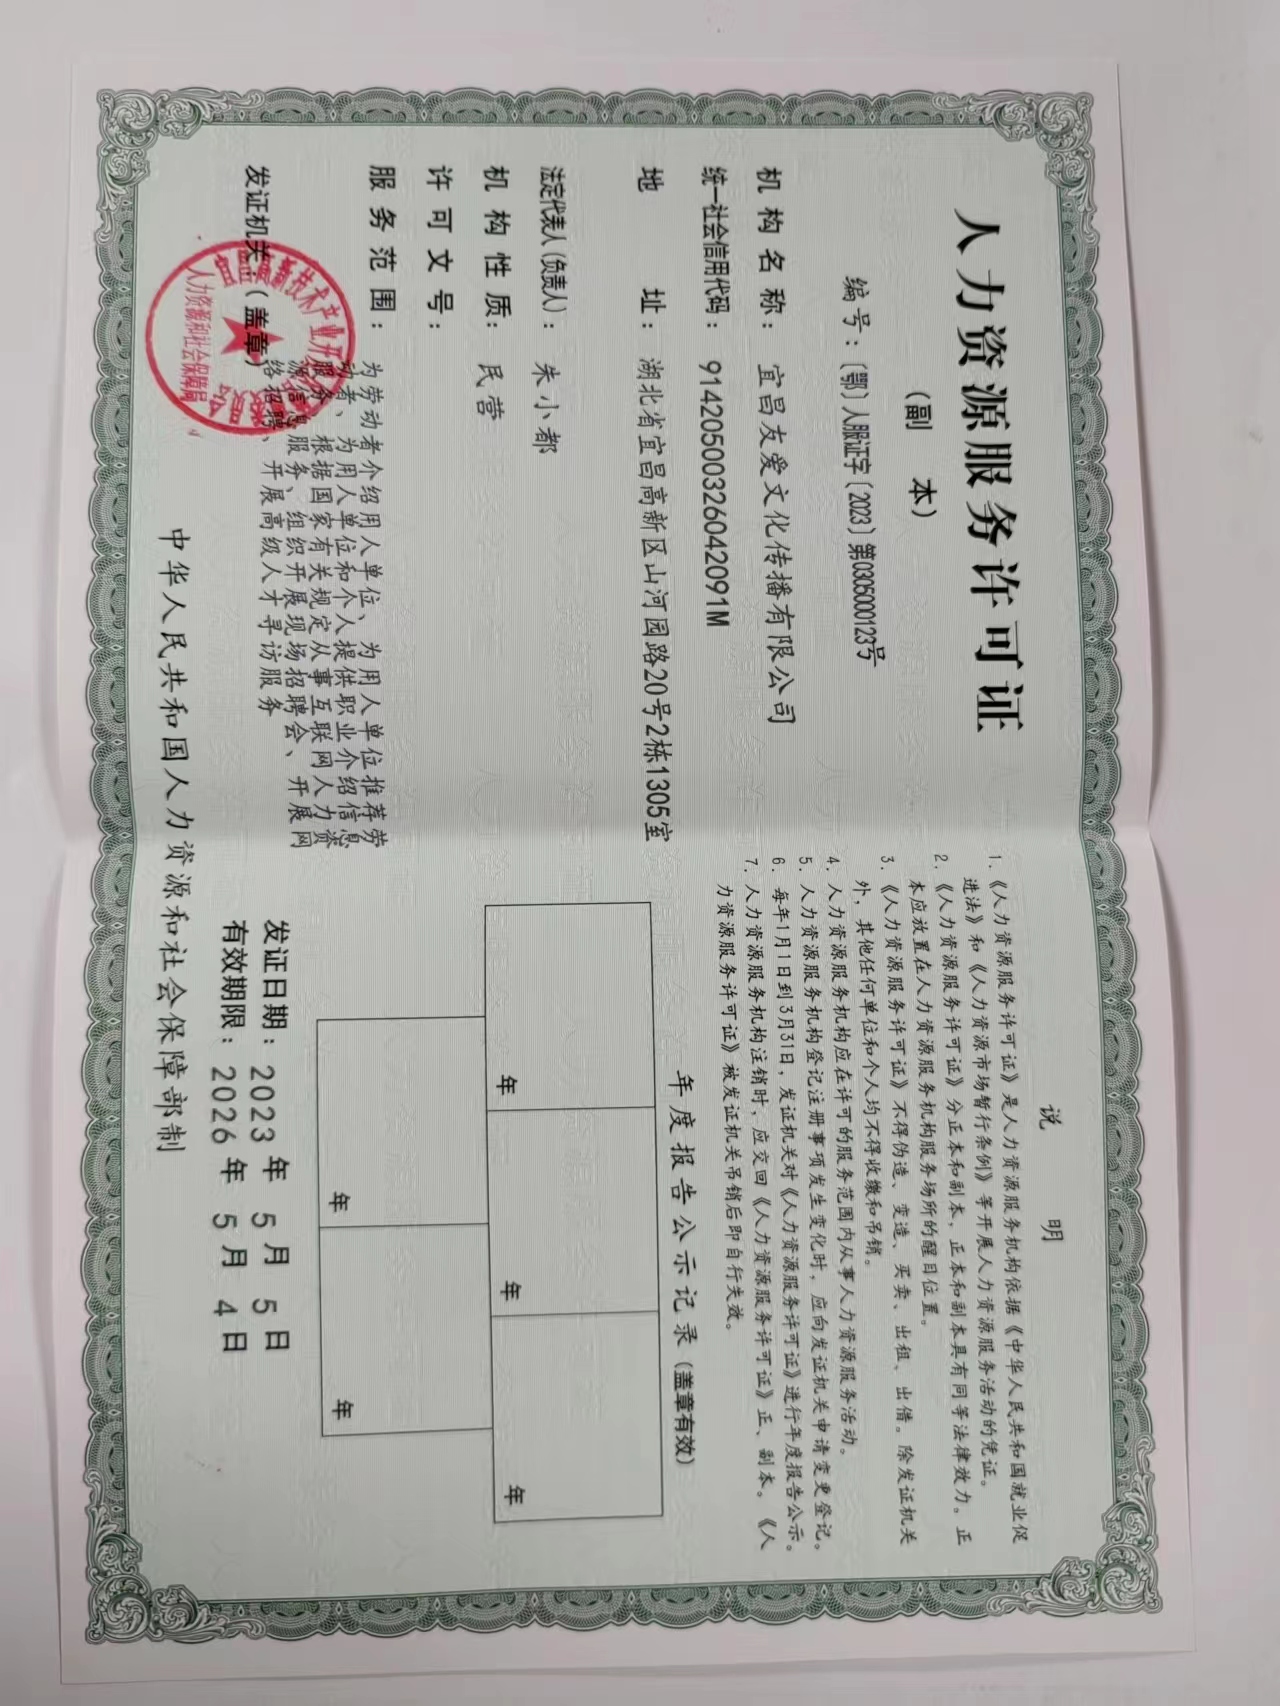 人力资源服务许可证
(副 本)
编号：〔鄂〕人服证字〔2023〕第0306000123号
机构名称：宜昌友爱文化传播有限公司
统一社会信用代码：91420500326042091M
地 址：湖北省宜昌高新区山河园路20号2栋1305室
法定代表人(负责人)：朱小都
机构性质：民营
许可文号：
服务范围：
为劳动者介绍用人单位、为用人单位推荐劳
动者、为用人单位和个人提供职业介绍信息
服务、根据国家有关规定从事互联网人力资
源信息服务、组织开展现场招聘会、开展网
络招聘、开展高级人才寻访服务
发证机关：(盖章)
宜昌高新技术产业开
人力资源和社会保障局
中华人民共和国人力资源和社会保障部制
说 明
1．《人力资源服务许可证》是人力资源服务机构依据《中华人民共和国就业促
进法》和《人力资源市场暂行条例》等开展人力资源服务活动的凭证。
2．《人力资源服务许可证》分正本和副本，正本和副本具有同等法律效力。正
本应放置在人力资源服务机构服务场所的醒目位置。
3．《人力资源服务许可证》不得伪造、变造、买卖、出租、出借。除发证机关
外，其他任何单位和个人均不得收缴和吊销。
4．人力资源服务机构应在许可的服务范围内从事人力资源服务活动。
5．人力资源服务机构登记注册事项发生变化时，应向发证机关申请变更登记。
6．每年1月1日到3月31日，发证机关对《人力资源服务许可证》进行年度报告公示。
7．人力资源服务机构注销时，应交回《人力资源服务许可证》正、副本。《人
力资源服务许可证》被发证机关吊销后即自行失效。
年度报告公示记录(盖章有效)
年
年
年
年
年
发证日期：2023年 5月 5日
有效期限：2026年 5月 4日